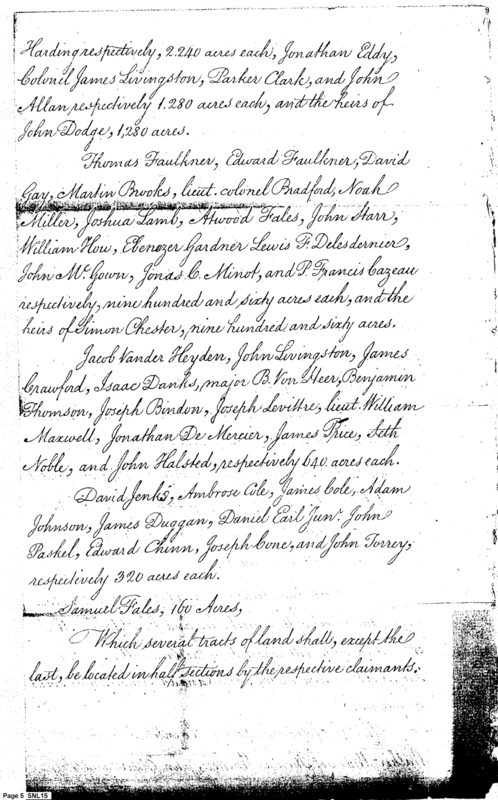 Harding respectively, 2.240 acres each, Jonathan Eddy,
Colonel James Livingston, Parker Clark, and John
Allan respectively 1.280 acres each, and the heirs of
John Dodge, 1,280 acres.
Thomas Faulkner, Edward Faulkner, David
Gay, Martin Brooks, lieut. colonel Bradford, Noah
Miller, Joshua Lamb, Atwood Fales, John Starr,
William How, Ebenezer Gardner Lewis F. Delesdernier,
John Mc. Gown, Jonas C. Minot, and P. Francis Cazeau
respectively, nine hundred and sixty acres each, and the
heirs of Simon Chester, nine hundred and sixty acres.
Jacob Vander Heyden, John Livingston, James
Crawford, Isaac Danks, major B. Von Heer, Benjamin
Thomson, Joseph Bindon, Joseph Levittre, lieut. William
Maxwell, Jonathan De Mercier, James Price, Seth
Noble, and John Halsted, respectively 640 acres each.
David Jenks, Ambrose Cole, James Cole, Adam
Johnson, James Duggan, Daniel Earl Junr. John
Paskel, Edward Chinn, Joseph Cone, and John Torrey,
respectively 320 acres each.
Samuel Fales, 160 Acres,
Which several tracts of land shall, except the
last, be located in half sections by the respective claimants.
Page 5 SNL15